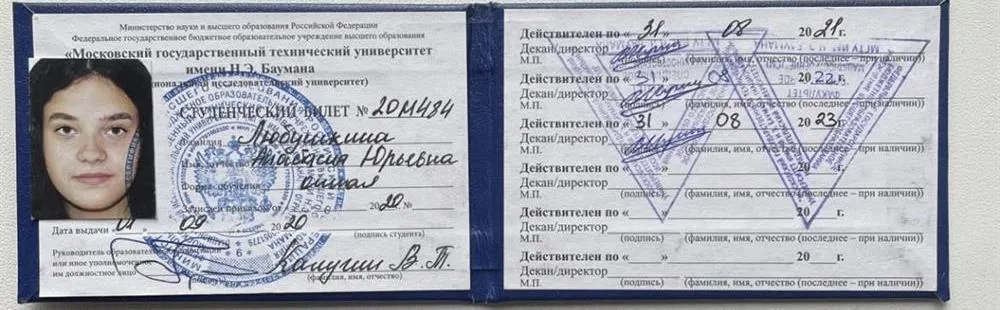 Министерство науки и высшего образования Российской Федерации
Федеральное государственное бюджетное образовательное учреждение высшего образования
«Московский государственный технический университет
имени Н.Э. Баумана
исследовательский университет)
СТУДЕНЧЕСКИЙ БИЛЕТ № 20М484
Фамилия Любушкина
Имя, отчество Анастасия Юрьевна
Форма обучения очная
Зачислен приказом от 20 20 №
Дата выдачи 01 » 09 20 20
(подпись студента)
Руководитель образовательной
или иное уполномоченное
им должностное лицо Калугин В.Т.
(фамилия, имя, отчество)
Действителен по « 31 » 08 20 21 г.
Декан/директор
М.П. (подпись) (фамилия, имя, отчество (последнее – при наличии))
Действителен по « 31 » 08 20 22 г.
Декан/директор
М.П. (подпись) (фамилия, имя, отчество (последнее – при наличии))
Действителен по « 31 » 08 20 23 г.
Декан/директор
М.П. (подпись) (фамилия, имя, отчество (последнее – при наличии))
Действителен по « » 20 г.
Декан/директор
М.П. (подпись) (фамилия, имя, отчество (последнее – при наличии))
Действителен по « » 20 г.
Декан/директор
М.П. (подпись) (фамилия, имя, отчество (последнее – при наличии))
Действителен по « » 20 г.
Декан/директор
М.П. (подпись) (фамилия, имя, отчество (последнее – при наличии))